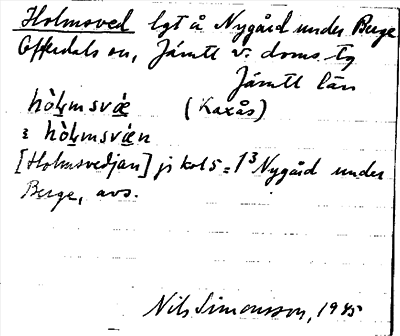 Holmsved lgt å Nygård under Berge
Offerdals sn, Jämtl. v. doms. tg
Jämtl län
hòḷmsvɶ (Kaxås)
hòḷmsvɶn
[Holmsvedjan] jr kol 5 = 1³ Nygård under
Berge, avs.
Nils Simonsson, 1945